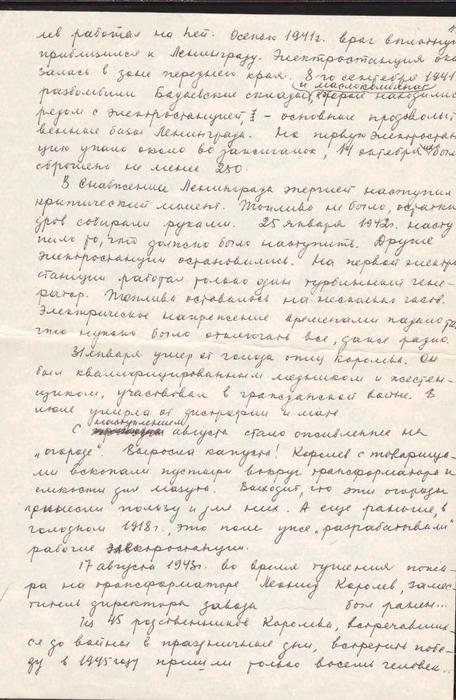 лев работал на нет. Осенью 1941г. враг вплотную
приблизился к Ленинграду. Электростанция ока
залась в зоне переднего края. 8го сентября 1941
и маслокомбинат
разбомбили Бадаевские склады, которые находились
рядом с электростанцией, – основные продовольст
венные базы Ленинграда. На первую электростан
цию упало около 80 зажигалок, 14 октября их было
сброшено не менее 250.
В снабжении Ленинграда энергией наступил
критический момент. Топлива не было, остатки
дров собирали руками. 25 января 1942г. насту
пило то, что должно было наступить. Другие
электростанции остановились. На первой электро
станции работал только один турбинный гене-
ратор. Топлива оставалось на несколько часов.
Электрическое напряжение временами падало так,
что нужно было отключать все, даже радио.
31 января умер от голода отец Королева. Он
был квалифицированным медником и жестян-
щиком, участвовал в гражданской войне. В
июле умерла от дистрофии и мать
наступлением
С августа стало оживленнее на
„огороде". Выросла капуста! Королев с товарища-
ми вскопали пустыри вокруг трансформатора и
емкости для мазута. Выходит, что эти огороды
принесли пользу и для них. А еще раньше, в
голодном 1918г., это поле уже „разрабатывали"
рабочие электростанции.
17 августа 1943г. во время тушения пожа-
ра на трансформаторе Леонид Королев, замес-
титель директора завода был ранен...
Из 45 родственников Королева, встречавших-
ся до войны в праздничные дни, встречать побе-
ду в 1945 году пришли только восемь человек...